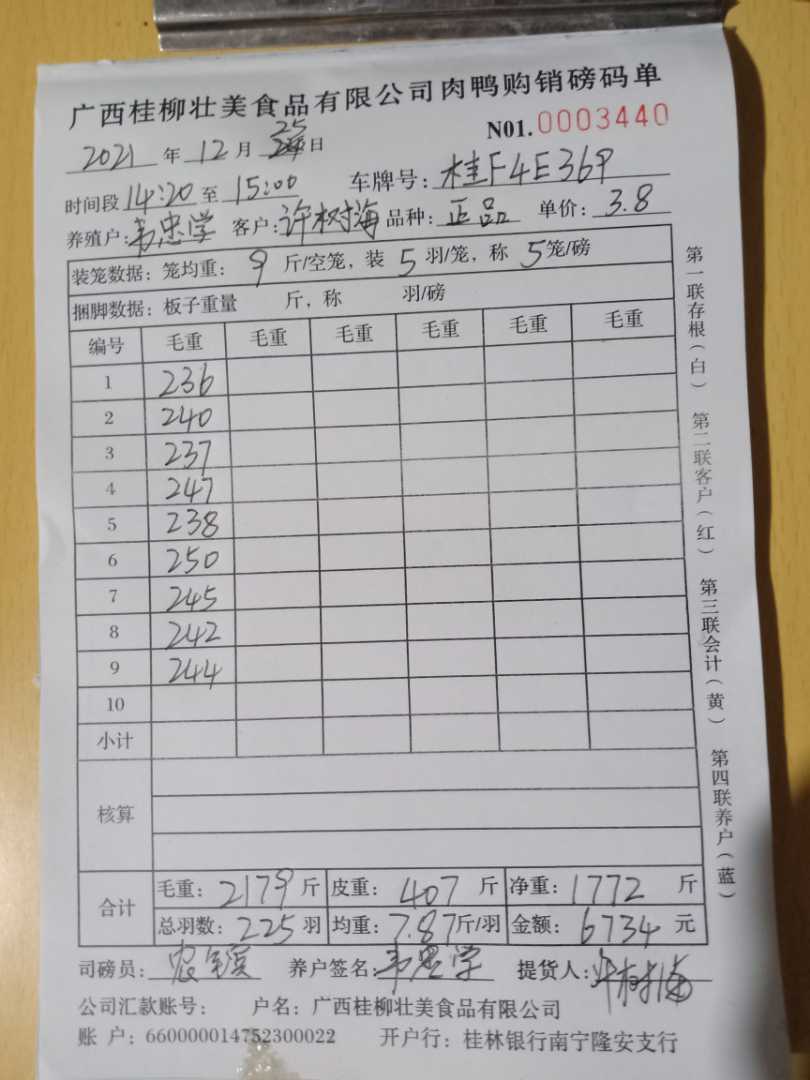 广西桂柳壮美食品有限公司肉鸭购销磅码单
N01.0003440
2021年12月25日
时间段14:20至15:00 车牌号:桂F4E369
养殖户:韦忠学 客户:许树海 品种:正品 单价:3.8
装笼数据:笼均重:9斤/空笼,装5羽/笼,称5笼/磅
捆脚数据:板子重量 斤,称 羽/磅
编号 毛重 毛重 毛重 毛重 毛重 毛重
1 236
2 240
3 237
4 247
5 238
6 250
7 245
8 242
9 244
10
小计
核算
合计 毛重:2179斤 皮重:407斤 净重:1772斤
总羽数:225羽 均重:7.87斤/羽 金额:6734元
司磅员: 养户签名:韦忠学 提货人:许树海
公司汇款账号: 户名:广西桂柳壮美食品有限公司
账 户:660000014752300022 开户行:桂林银行南宁隆安支行
第一联存根(白) 第二联客户(红) 第三联会计(黄) 第四联养户(蓝)